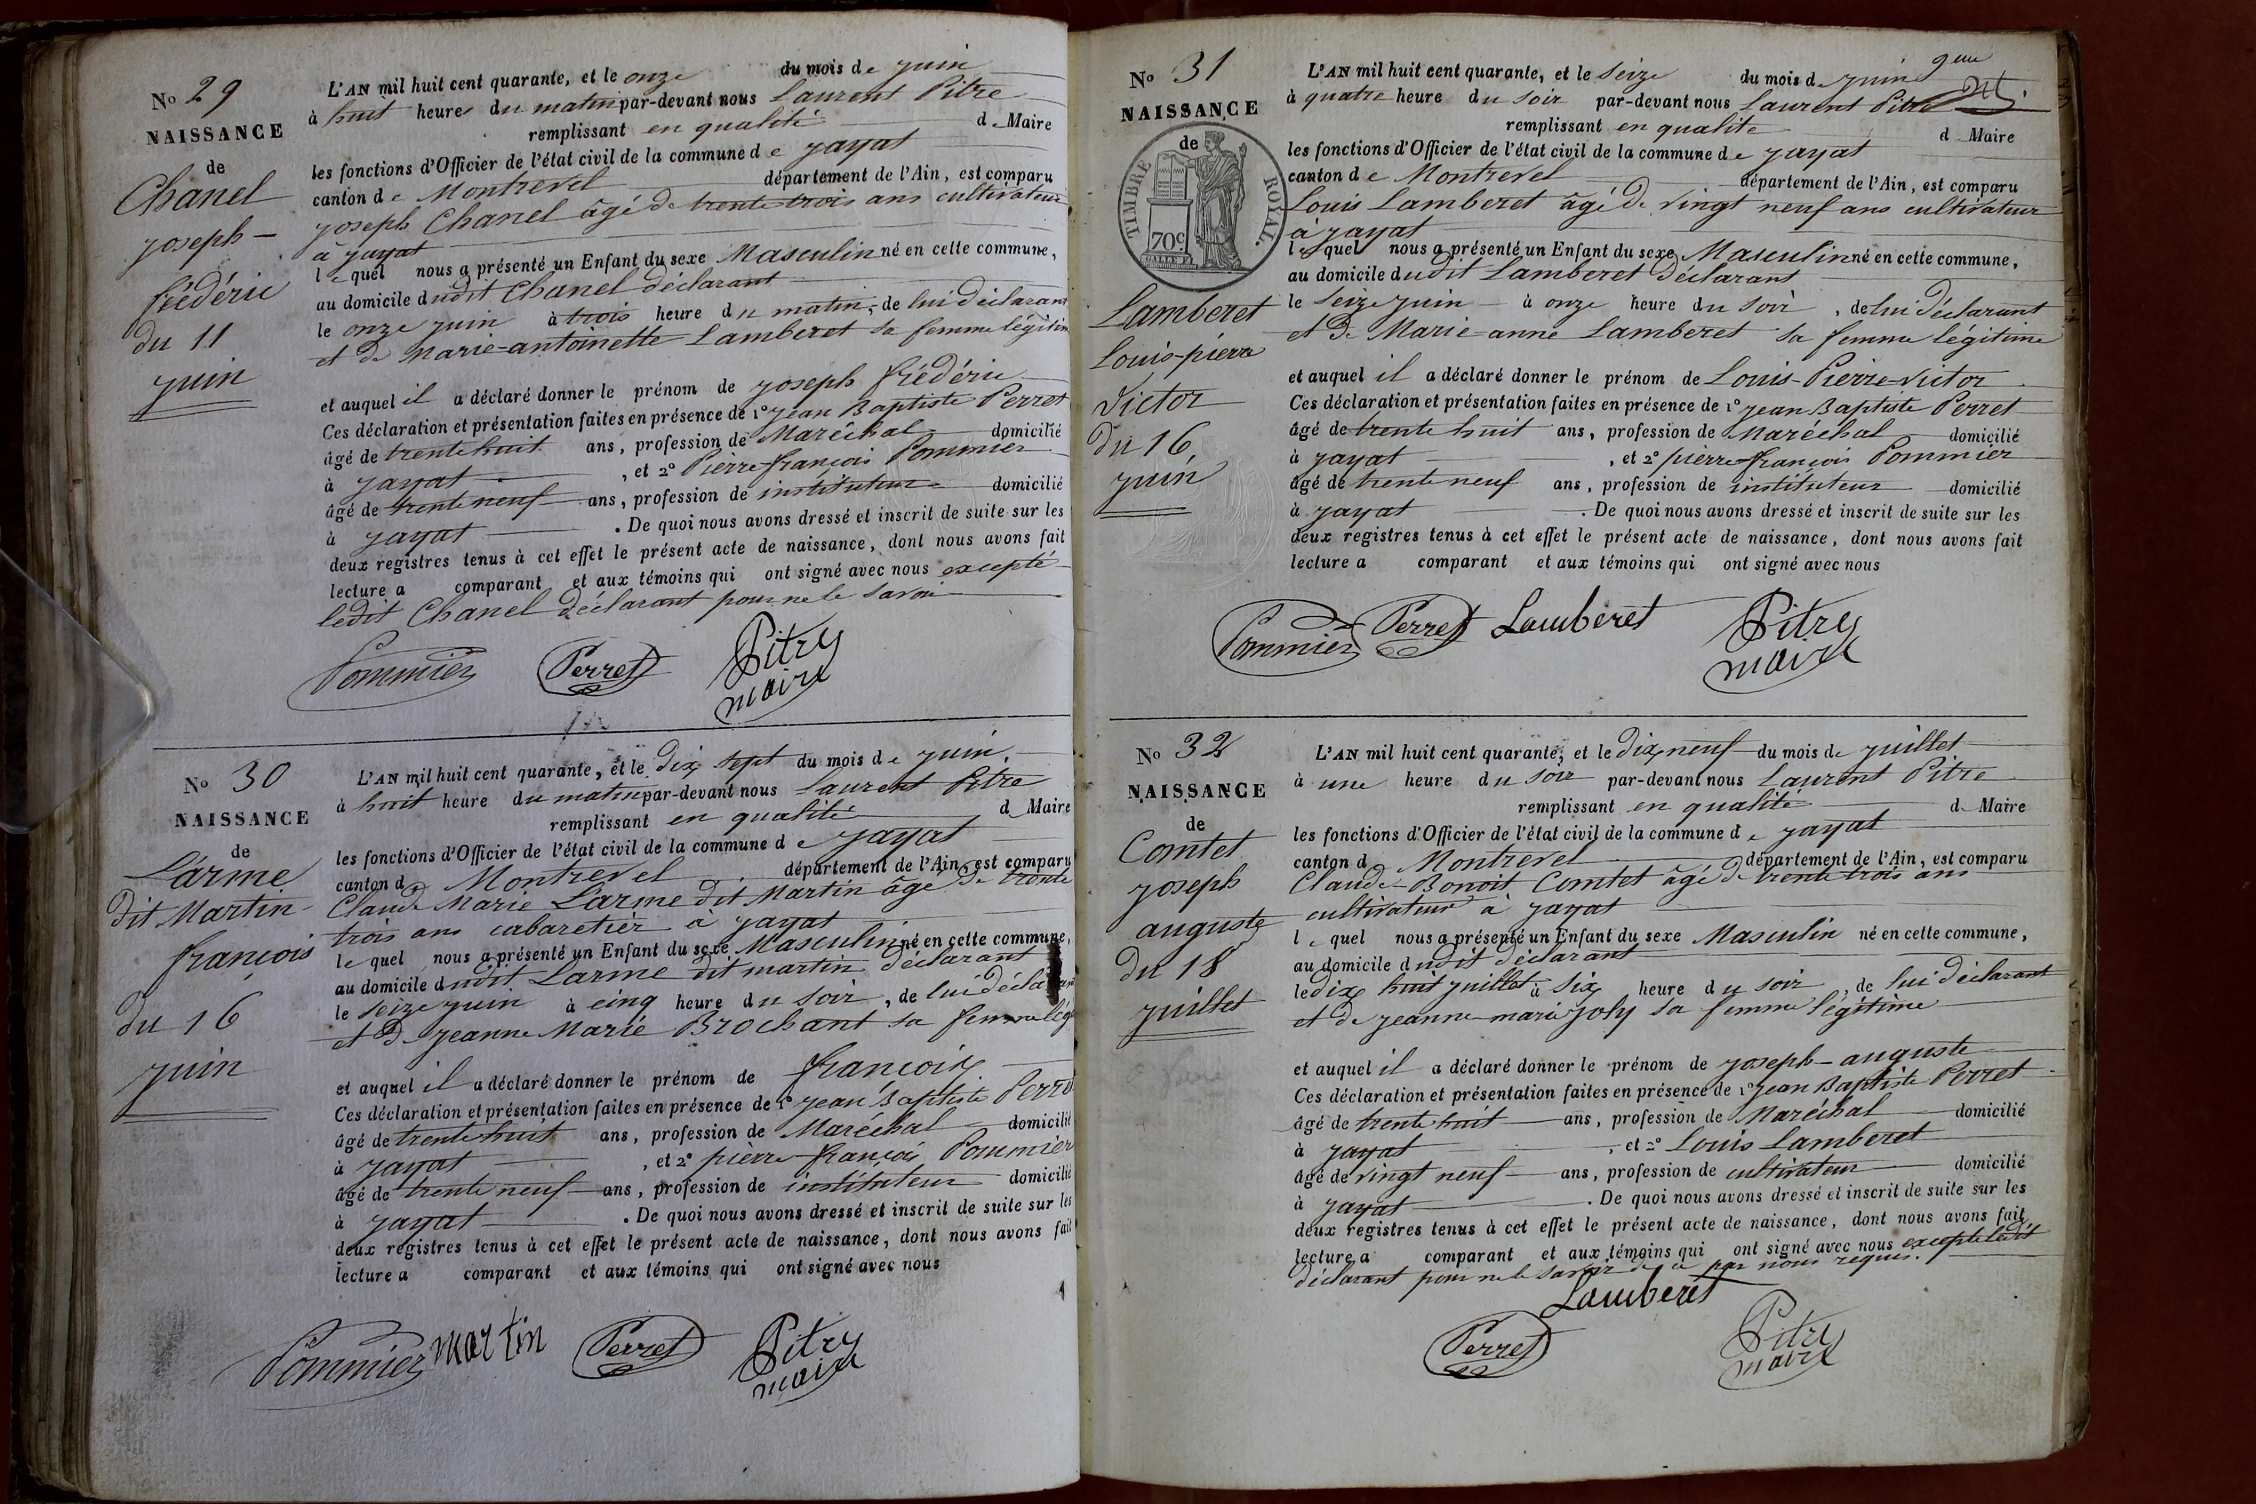 No 29
NAISSANCE
de
Chanel
joseph
frédéric
du 11
juin
L'AN mil huit cent quarante, et le onze du mois de juin
à huit heures du matin par-devant nous Laurent Pitre
remplissant en qualité de Maire
les fonctions d'Officier de l'état civil de la commune de jayat
canton de Montrevel département de l'Ain, est comparu
joseph Chanel âgé de trente trois ans cultivateur
à jayat
lequel nous a présenté un Enfant du sexe Masculin né en cette commune,
au domicile dudit Chanel déclarant
le onze juin à trois heure du matin, de lui déclarant
et de Marie-antoinette Lamberet sa femme légitim
et auquel il a déclaré donner le prénom de joseph frédéric
Ces déclaration et présentation faites en présence de 1º jean Baptiste Perret
âgé de trente huit ans, profession de Maréchal domicilié
à jayat, et 2º Pierre françois Pommier
âgé de trente neuf ans, profession de instituteur domicilié
à jayat. De quoi nous avons dressé et inscrit de suite sur les
deux registres tenus à cet effet le présent acte de naissance, dont nous avons fait
lecture a comparant et aux témoins qui ont signé avec nous excepté
ledit Chanel déclarant pour ne le savoir
Pommier Perret Pitre
maire
No 30
NAISSANCE
de
Larme
dit Martin
françois
du 16
juin
L'AN mil huit cent quarante, et le dix sept du mois de juin
à huit heure du matin par-devant nous Laurent Pitre
remplissant en qualité d Maire
les fonctions d'Officier de l'état civil de la commune de jayat
canton d Montrevel département de l'Ain, est comparu
Claude Marie Larme dit Martin âgé de trente
trois ans cabaretier à jayat
lequel nous a présenté un Enfant du sexe Masculin né en cette commune,
au domicile dudit Larme dit martin déclarant
le seize juin à cinq heure du soir, de lui déclarant
et de jeanne Marie Brochant sa femme lég
et auquel il a déclaré donner le prénom de françois
Ces déclaration et présentation faites en présence de 1º jean Baptiste Perret
âgé de trente huit ans, profession de Maréchal domicilié
à jayat, et 2º pierre françois Pommier
âgé de trente neuf ans, profession de instituteur domicilié
à jayat. De quoi nous avons dressé et inscrit de suite sur les
deux registres tenus à cet effet le présent acte de naissance, dont nous avons fait
lecture a comparant et aux témoins qui ont signé avec nous
Pommier martin Perret Pitre
maire
No 31
NAISSANCE
de
TIMBRE ROYAL.
70c
Lamberet
Louis-pierre
Victor
du 16
juin
L'AN mil huit cent quarante, et le seize du mois d juin
à quatre heure du soir par-devant nous Laurent Pitre
remplissant en qualité d Maire
les fonctions d'Officier de l'état civil de la commune de jayat
canton de Montrevel département de l'Ain, est comparu
Louis Lamberet âgé de vingt neuf ans cultivateur
à jayat
lequel nous a présenté un Enfant du sexe Masculin né en cette commune,
au domicile dudit Lamberet déclarant
le seize juin à onze heure du soir, de lui déclarant
et de Marie anne Lamberet sa femme légitime
et auquel il a déclaré donner le prénom de Louis-Pierre-Victor
Ces déclaration et présentation faites en présence de 1º jean Baptiste Perret
âgé de trente huit ans, profession de Maréchal domicilié
à jayat, et 2º pierre françois Pommier
âgé de trente neuf ans, profession de instituteur domicilié
à jayat. De quoi nous avons dressé et inscrit de suite sur les
deux registres tenus à cet effet le présent acte de naissance, dont nous avons fait
lecture a comparant et aux témoins qui ont signé avec nous
Pommier Perret Lamberet Pitre
maire
No 32
NAISSANCE
de
Comtet
joseph
auguste
du 18
juillet
L'AN mil huit cent quarante, et le dix neuf du mois de juillet
à une heure du soir par-devant nous Laurent Pitre
remplissant en qualité d Maire
les fonctions d'Officier de l'état civil de la commune de jayat
canton d Montrevel département de l'Ain, est comparu
Claude-Bonoit Comtet âgé de trente trois ans
cultivateur à jayat
lequel nous a présenté un Enfant du sexe Masculin né en cette commune,
au domicile dudit déclarant
le dix huit juillet à six heure du soir, de lui déclarant
et de jeanne marie joly sa femme légitime
et auquel il a déclaré donner le prénom de joseph-auguste
Ces déclaration et présentation faites en présence de 1º jean Baptiste Perret
âgé de trente huit ans, profession de Maréchal domicilié
à jayat, et 2º Louis Lamberet
âgé de vingt neuf ans, profession de cultivateur domicilié
à jayat. De quoi nous avons dressé et inscrit de suite sur les
deux registres tenus à cet effet le présent acte de naissance, dont nous avons fait
lecture a comparant et aux témoins qui ont signé avec nous excepté ledit
déclarant pour ne le savoir de ce par nous requis.
Lamberet
Perret Pitre
maire